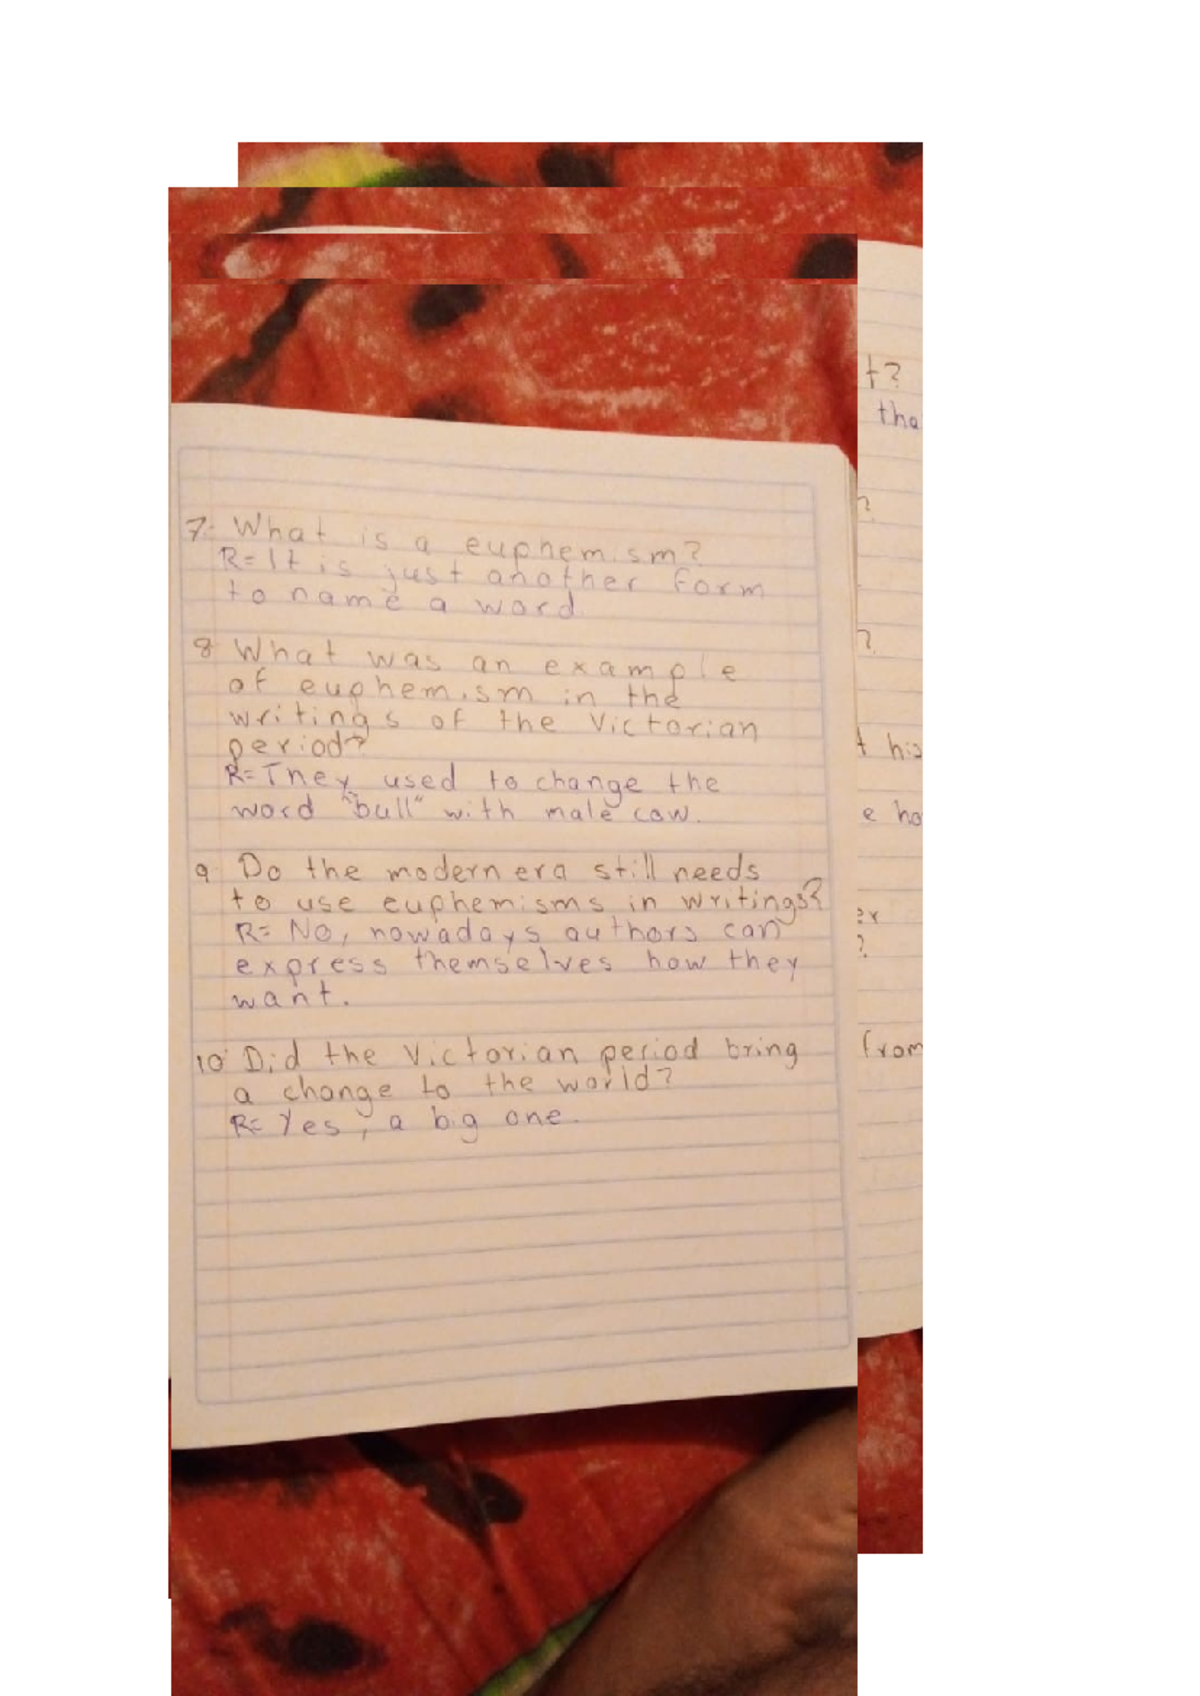 7. What is a euphemism?
R= It is just another form
to name a word.
8. What was an example
of euphemism in the
writings of the Victorian
period?
R= They used to change the
word "bull" with male cow.
9. Do the modern era still needs
to use euphemisms in writings?
R= No, nowadays authors can
express themselves how they
want.
10. Did the Victorian period bring
a change to the world?
R= Yes, a big one.
t?
tha
?
?
t his
e ho
er
?
from